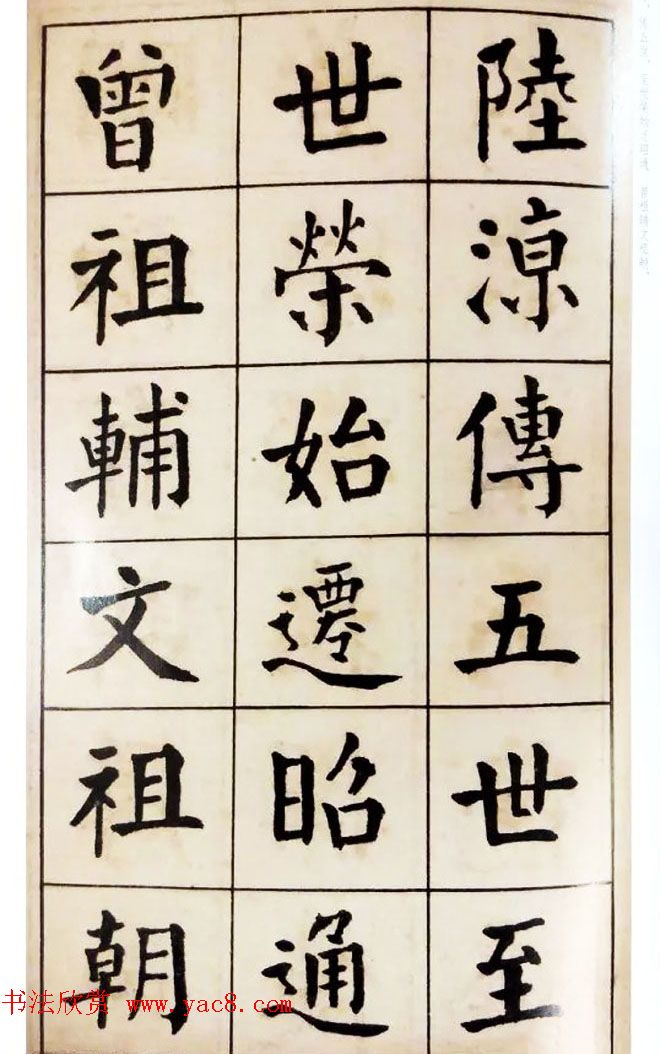 陸涼傳五世至
世榮始遷昭通
曾祖輔文祖朝
书法欣赏 www.yac8.com